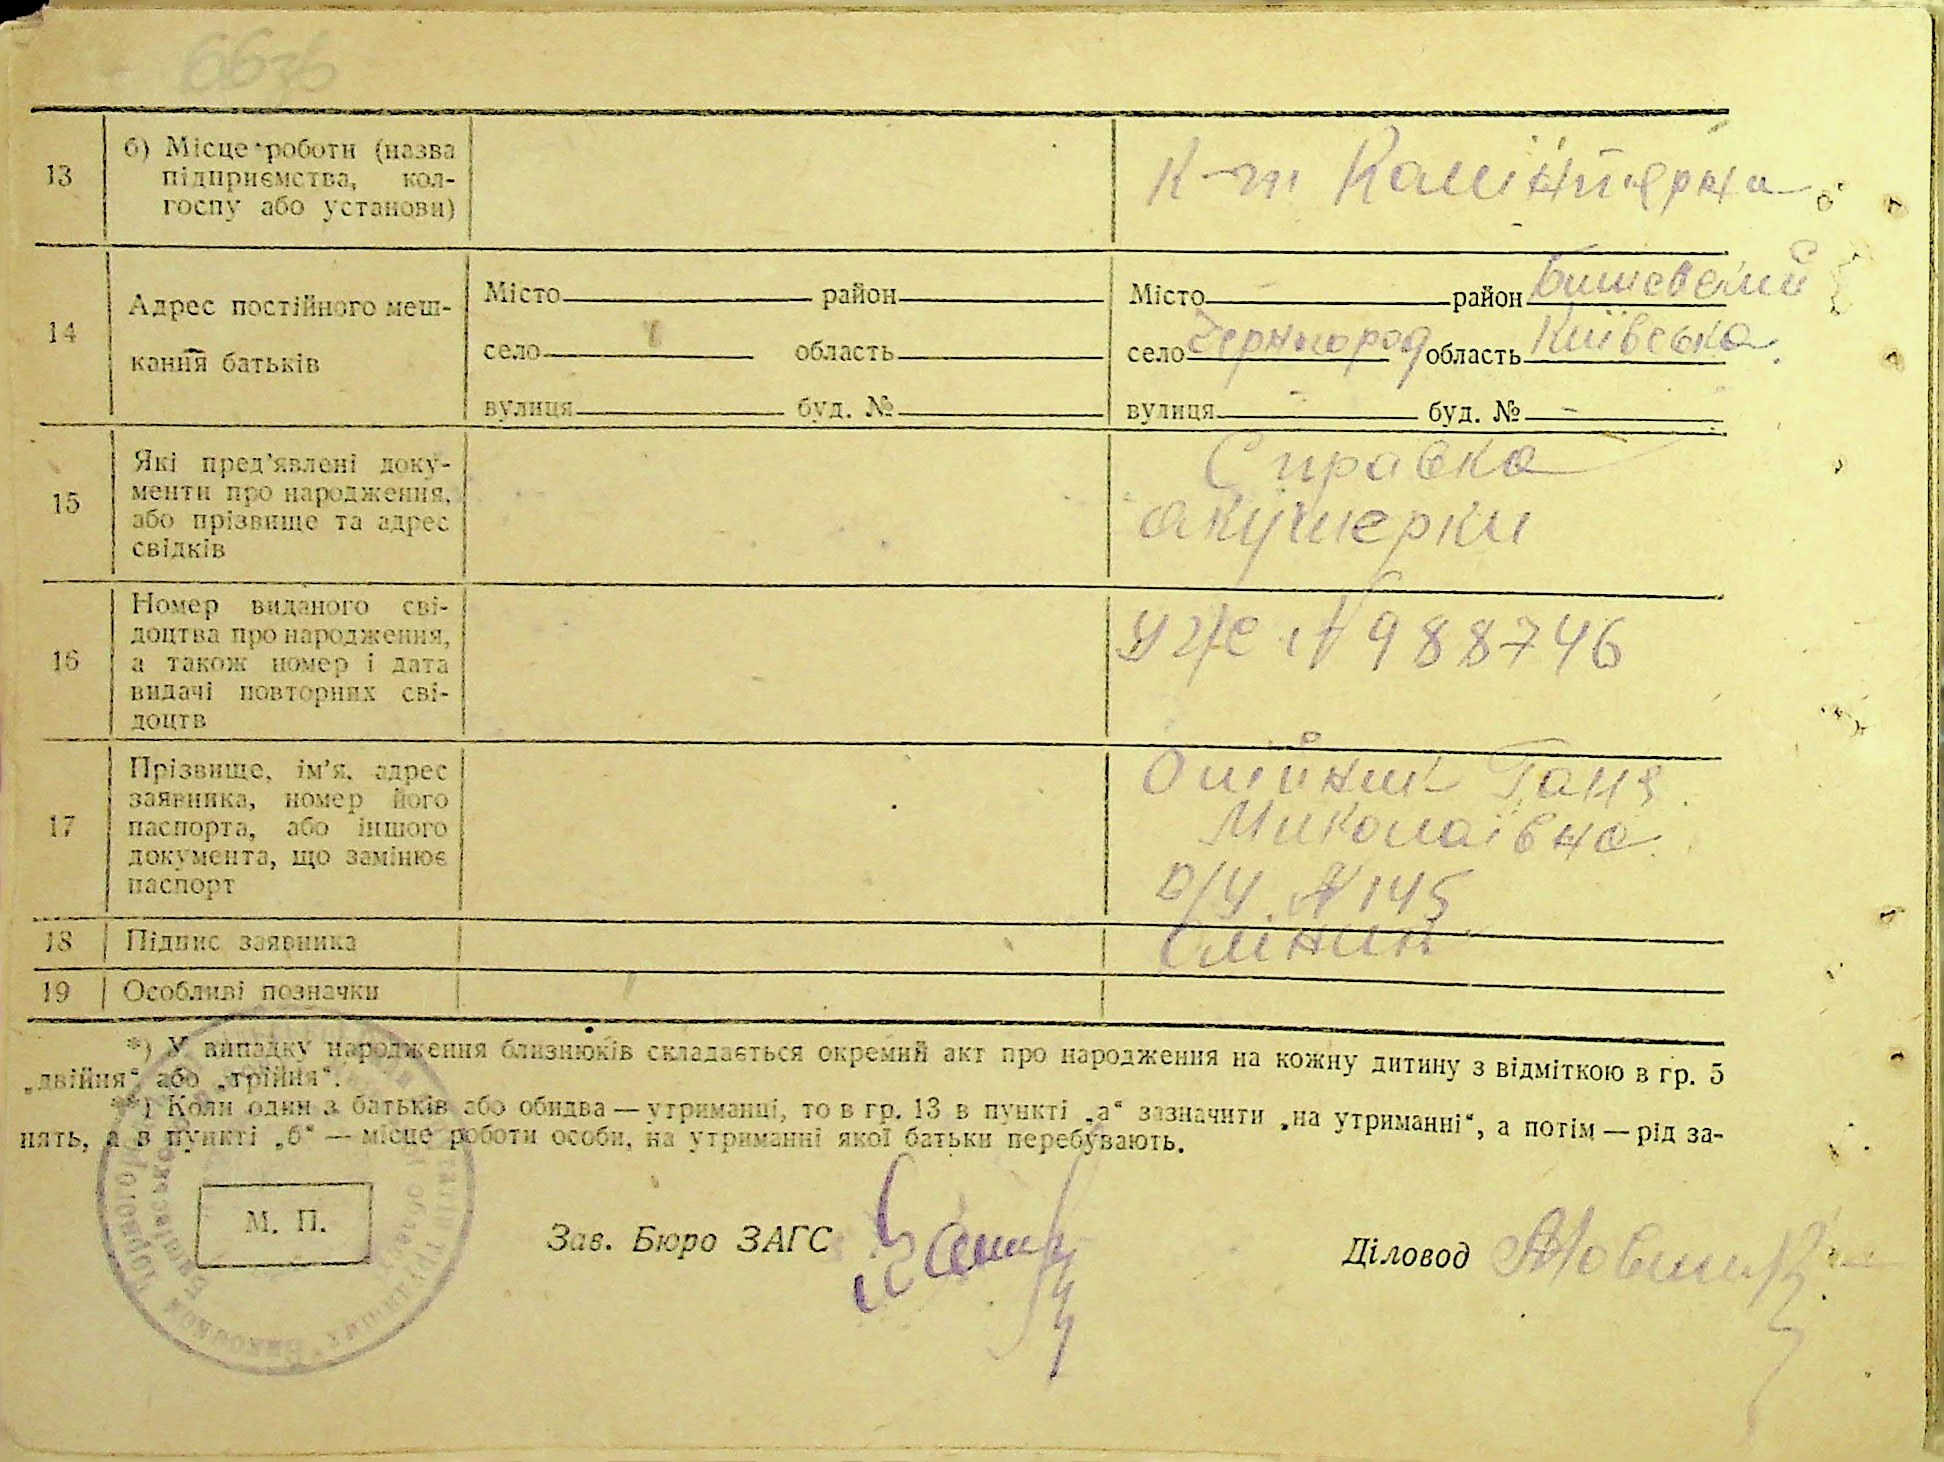 13
б) Місце роботи (назва
підприємства, кол-
госпу або установи)
К-т Комінтерна
14
Адрес постійного меш-
кання батьків
Місто район
село область
вулиця буд. №
Місто район Бишевский
село Чорногород область Київська
вулиця - буд. № -
15
Які пред'явлені доку-
менти про народження,
або прізвище та адрес
свідків
Справка
акушерки
16
Номер виданого сві-
доцтва про народження,
а також номер і дата
видачі повторних сві-
доцтв
N 988746
17
Прізвище, ім'я, адрес
заявника, номер його
паспорта, або іншого
документа, що замінює
паспорт
Олійник Ганя
Миколаївна
N 145
18
Підпис заявника
19
Особливі позначки
*) У випадку народження близнюків складається окремий акт про народження на кожну дитину з відміткою в гр. 5
„двійня“ або „трійня“.
**) Коли один з батьків або обидва — утриманці, то в гр. 13 в пункті „а“ зазначити „на утриманні“, а потім — рід за-
нять, а в пункті „б“ — місце роботи особи, на утриманні якої батьки перебувають.
М. П.
Зав. Бюро ЗАГС
Діловод